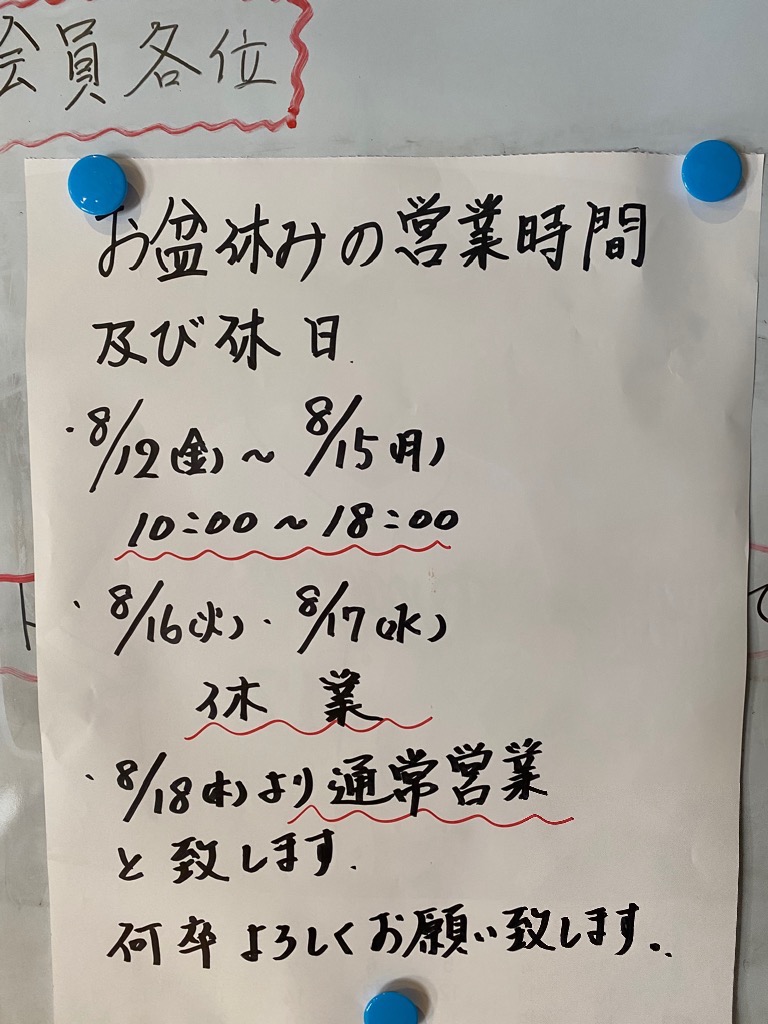 会員各位
お盆休みの営業時間
及び休日.
・8/12(金)～8/15(月)
10:00～18:00
・8/16(火)・8/17(水)
休業
・8/18(木)より通常営業
と致します.
何卒よろしくお願い致します.